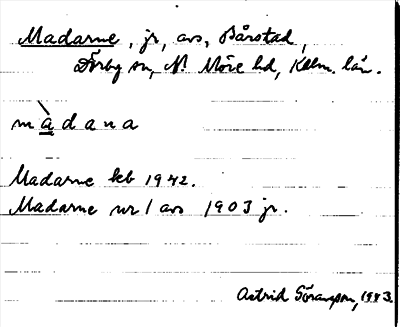 Madarne, jr, avs, Bårstad,
Dörby sn, N. Möre hd, Kalm. län.
màdana
Madarne kb 1942.
Madarne nr 1 avs 1903 jr.
Astrid Göransson, 1983.